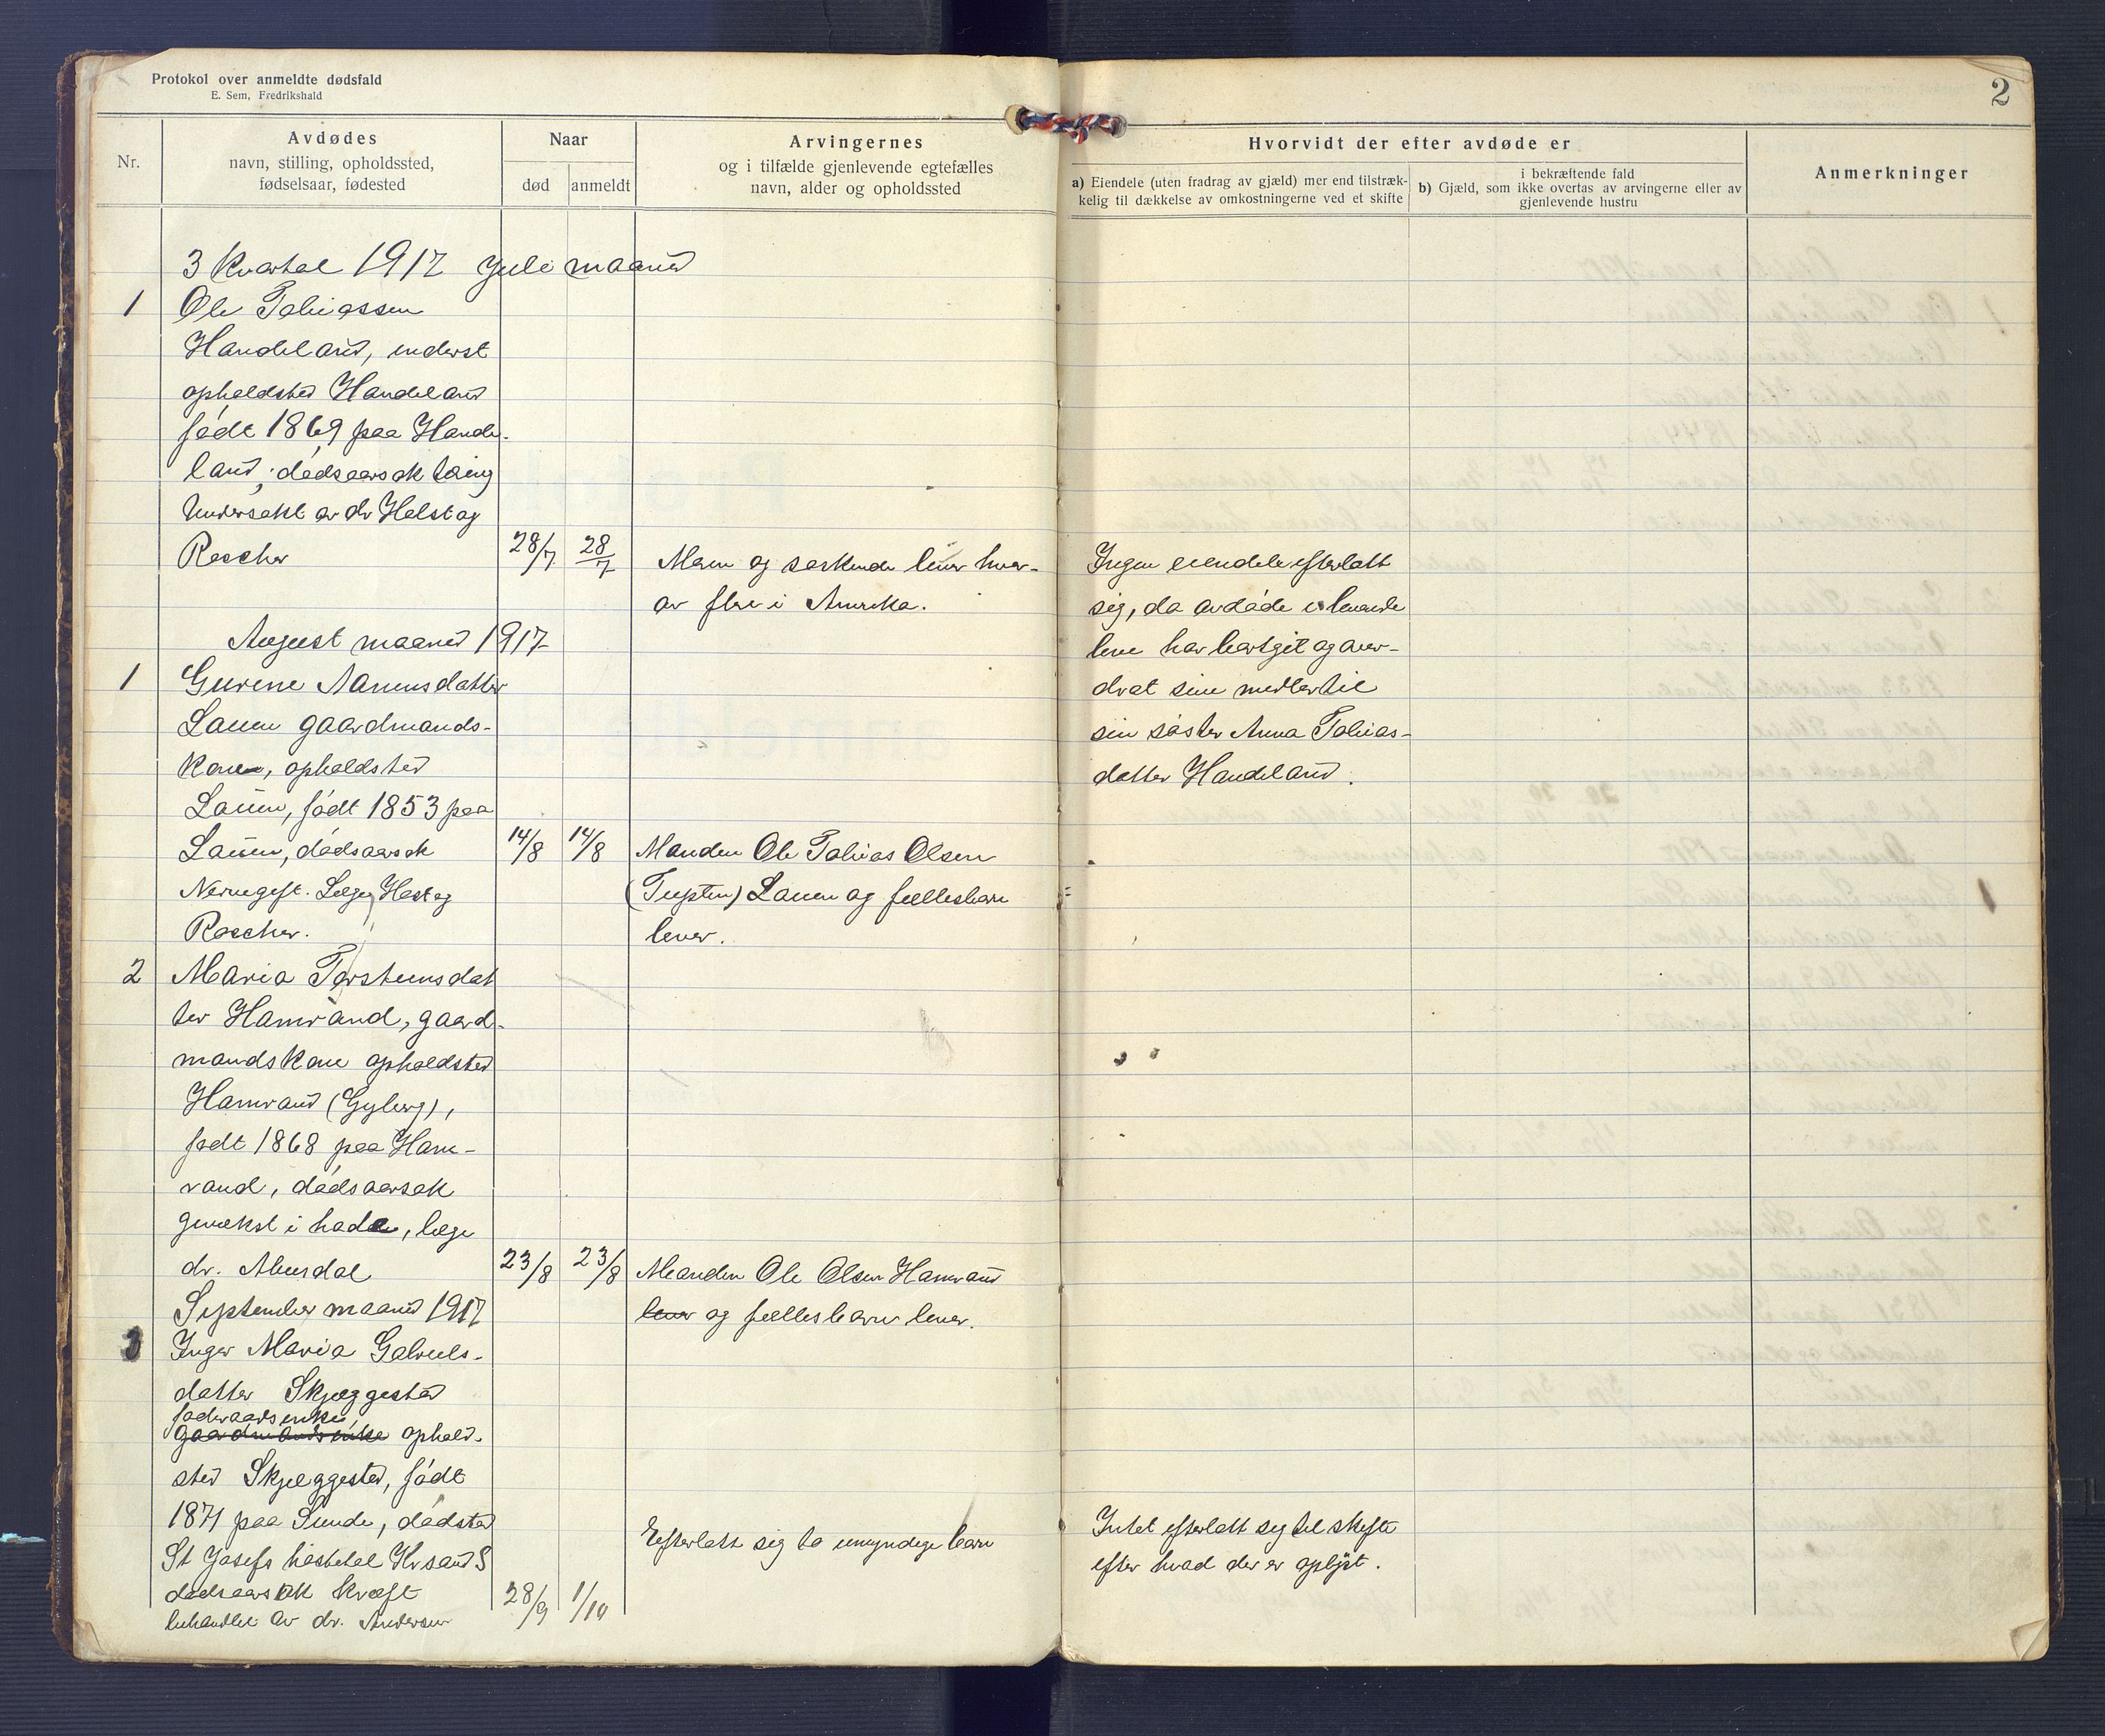 Protokol over anmeldte dødsfald
E. Sem, Fredrikshald
2
Nr.
Avdødes
navn, stilling, opholdssted,
fødselsaar, fødested
Naar
død
anmeldt
Arvingernes
og i tilfælde gjenlevende egtefælles
navn, alder og opholdssted
Hvorvidt der efter avdøde er
a) Eiendele (uten fradrag av gjæld) mer end tilstræk-
kelig til dækkelse av omkostningerne ved et skifte
i bekræftende fald
b) Gjæld, som ikke overtas av arvingerne eller av
gjenlevende hustru
Anmerkninger
3 Kvartal 1917 Juli maaned
1 Ole Tobiassen
Handeland, inderst
opholdsted Handeland
født 1869 paa Hande-
land, dødsaarsak tæring
Undersøkt av dr Helst og
Roscher 28/7 28/7
Moren og søskende lever hvor-
av flere i Amerika.
Ingen eiendele efterlatt
sig, da avdøde i levende
live har bortgit og over-
drat sine midler til
sin søster Anna Tobias-
datter Handeland.
August maaned 1917
1 Gurine Aanensdatter
Lauen gaardmands-
kone, opholdsted
Lauen, født 1853 paa
Lauen, dødsaarsak 14/8 14/8
Nervegift. Læge Helst og
Roscher.
Manden Ole Tobias Olsen
Lauen og fællesbarn
lever.
2 Maria Torsteinsdat
ter Hamrand, gaard-
mandskone opholdsted
Hamrand (Gyberg),
født 1868 paa Ham-
rand, dødsaarsak
gevekst i hode, læge
dr. Abusdal 23/8 23/8
Manden Ole Olsen Hamrand
lever og fællesbarn lever.
September maaned 1917
3 Inger Maria Gabriels-
datter Skjæggestad
føderaadsenke
gaardmandsenke ophold-
sted Skjæggestad, født
1871 paa Sunde, dødsted
St Josefs hospital Kr.sand S
dødsaarsak kræft 28/9 1/10
behandlet av dr. Andersen
Efterlatt sig to umyndige barn
Intet efterlatt sig til skifte
efter hvad der er oplyst.